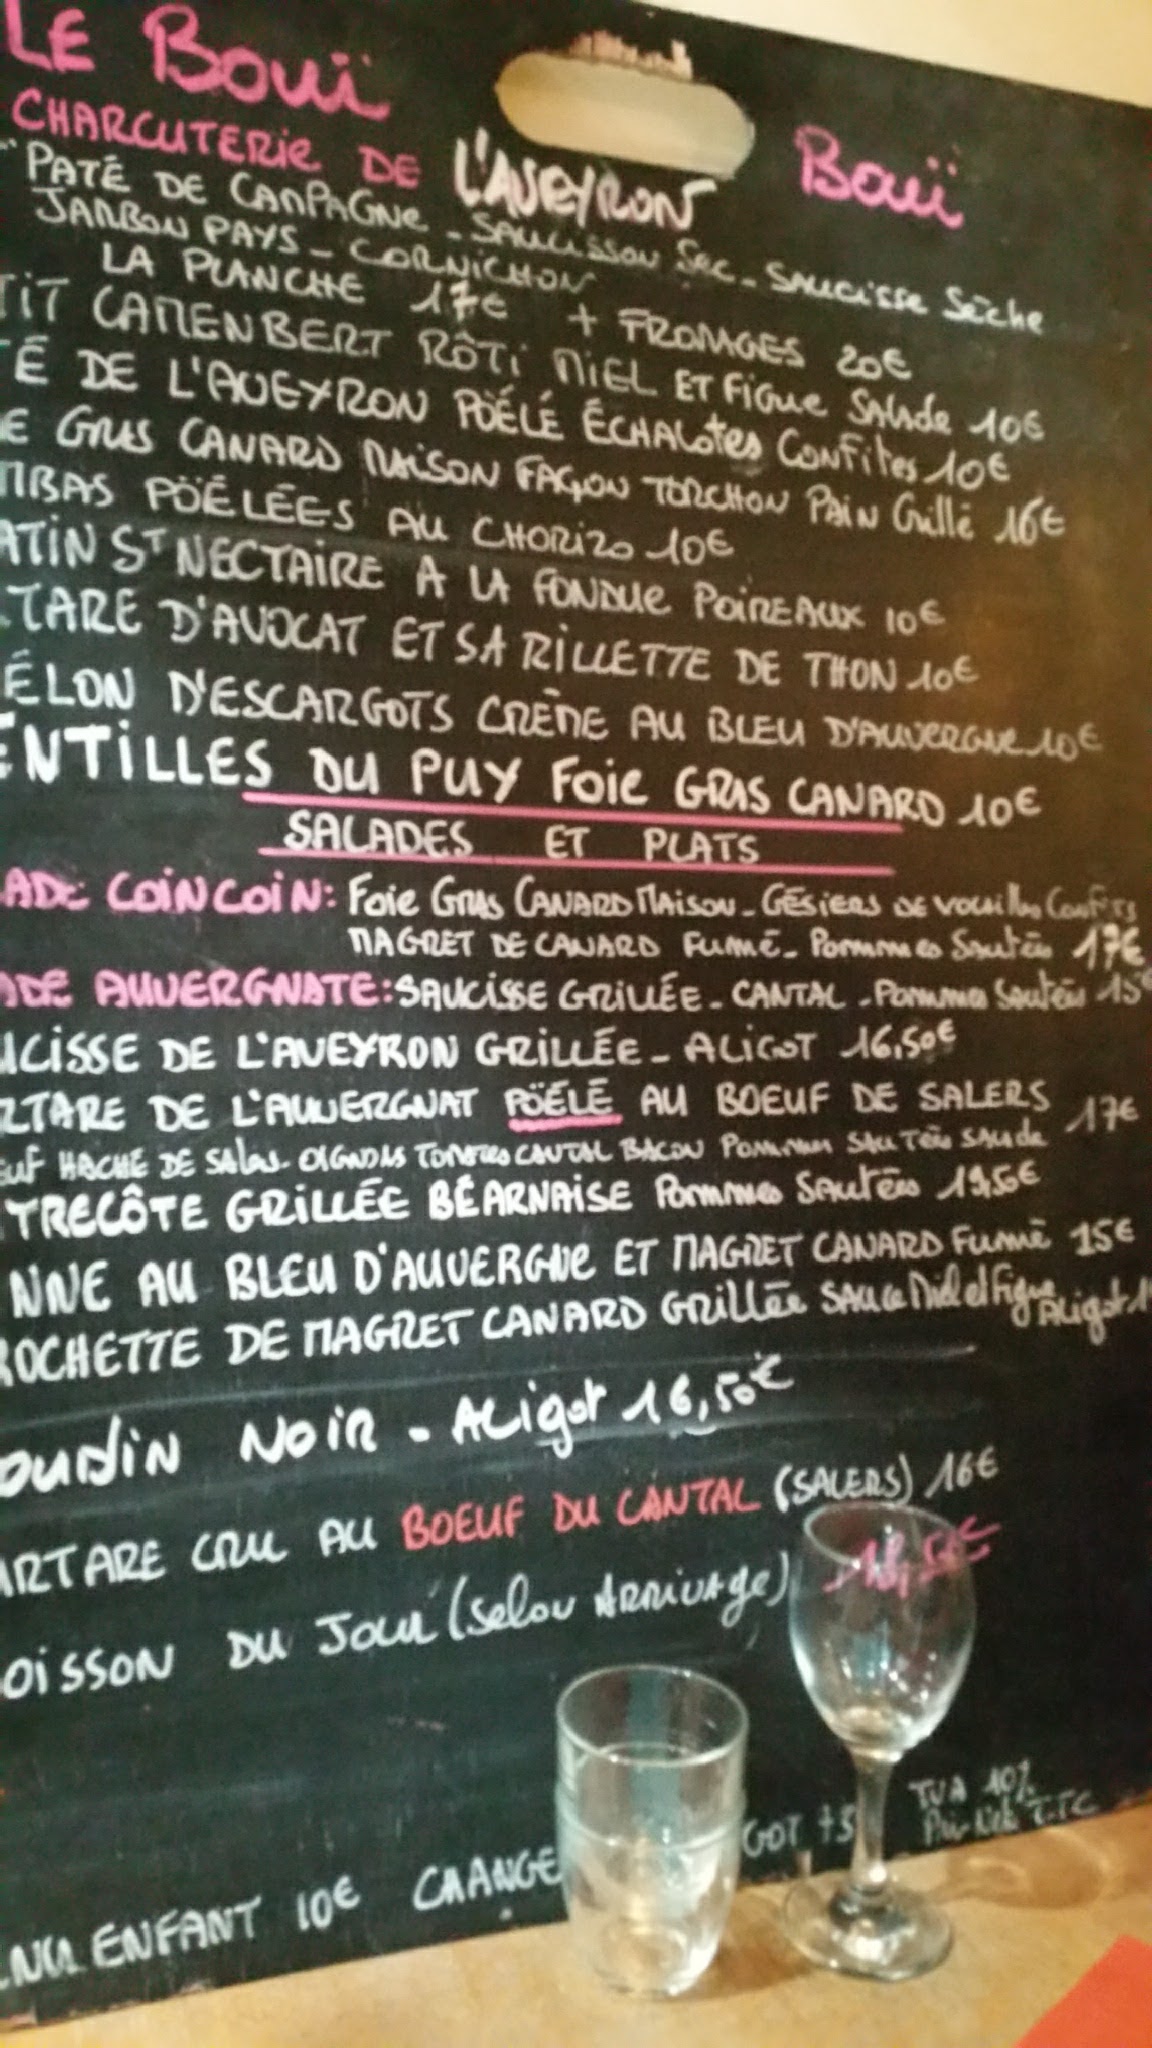 LE Bouï Bouï
CHARCUTERIE DE L'AVEYRON
PATÉ DE CAMPAGNE - SAUCISSON SEC - SAUCISSE SÈCHE
JAMBON PAYS - CORNICHON
LA PLANCHE 17€ + FROMAGES 20€
TIT CAMENBERT RÔTI MIEL ET FIGUE SALADE 10€
TÉ DE L'AVEYRON PÖÊLÉ ÉCHALOTES CONFITES 10€
IE GRAS CANARD MAISON FAÇON TORCHON PAIN GRILLÉ 16€
MBAS PÖÊLÉES AU CHORIZO 10€
ATIN ST NECTAIRE A LA FONDUE POIREAUX 10€
TARE D'AVOCAT ET SA RILLETTE DE THON 10€
ÉLON D'ESCARGOTS CRÈME AU BLEU D'AUVERGNE 10€
ENTILLES DU PUY FOIE GRAS CANARD 10€
SALADES ET PLATS
ADE COINCOIN: FOIE GRAS CANARD MAISON - GÉSIERS DE VOLAILLES CONFITS
MAGRET DE CANARD FUMÉ - POMMES SAUTÉES 17€
ADE AUVERGNATE: SAUCISSE GRILLÉE - CANTAL - POMMES SAUTÉES 15€
UCISSE DE L'AVEYRON GRILLÉE - ALIGOT 16,50€
RTARE DE L'AUVERGNAT PÖÊLÉ AU BOEUF DE SALERS 17€
EUF HACHÉ DE SALERS - OIGNONS TOMATES CANTAL BACON POMMES SAUTÉES SALADE
TRECÔTE GRILLÉE BÉARNAISE POMMES SAUTÉES
NNE AU BLEU D'AUVERGNE ET MAGRET CANARD FUMÉ 15€
ROCHETTE DE MAGRET CANARD GRILLÉE SAUCE MIEL ET FIGUE ALIGOT
OUDIN NOIR - ALIGOT 16,50€
ARTARE CRU AU BOEUF DU CANTAL (SALERS) 16€
OISSON DU JOUR (SELON ARRIVAGE)
TVA 10%
GOT +3
ENU ENFANT 10€ CHANGE